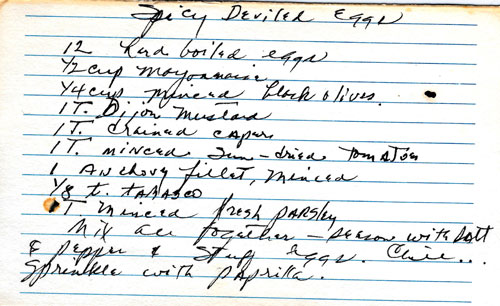 Spicy Deviled Eggs
12 hard boiled eggs
1/2 cup Mayonnaise
1/4 cup Minced black olives.
1 T. Dijon Mustard
1 T. drained capers
1 T. minced Sun-dried Tomatoes
1 Anchovy fillet, Minced
1/8 t. TABASCO
1 T Minced fresh PARSley
Mix all together - season with Salt
& pepper & Stuff Eggs. Chill...
Sprinkle with paprika.